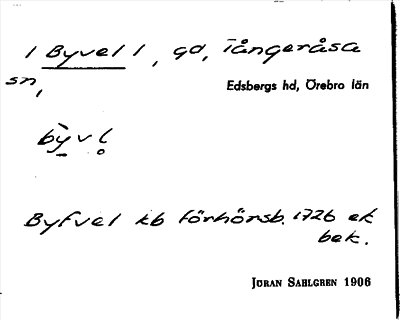 / Byvel /, gd, Tångeråsa
sn,
Edsbergs hd, Örebro län
bỳ̲vl̥
Byfvel kb förhörsb. 1726 ek
bek.
Jöran Sahlgren 1906